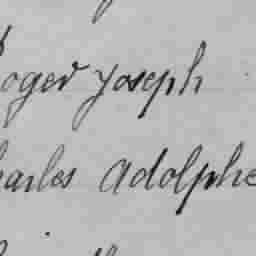 oger Joseph
harles Adolphe